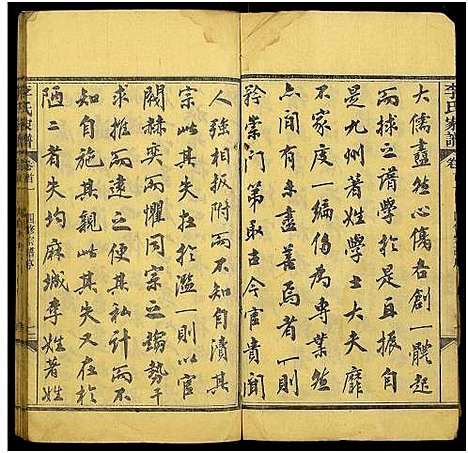 李氏家譜
大儒盡然心傷各創一體起
而捄之譜學於是再振自
是九州著姓學士大夫靡
不家度一編傷為專業然
亦間有未盡善焉者則
矜崇門第取古今官貴聞
人強相扳附而不知自瀆其
宗此其失在於濫一則以官
閥赫奕而懼同宗之瑜勢干
求推而遠之便其私計而不
知自施其親此其失又在於
陋二者失均麻城李姓著姓
李氏家譜
卷首
四修宗譜序